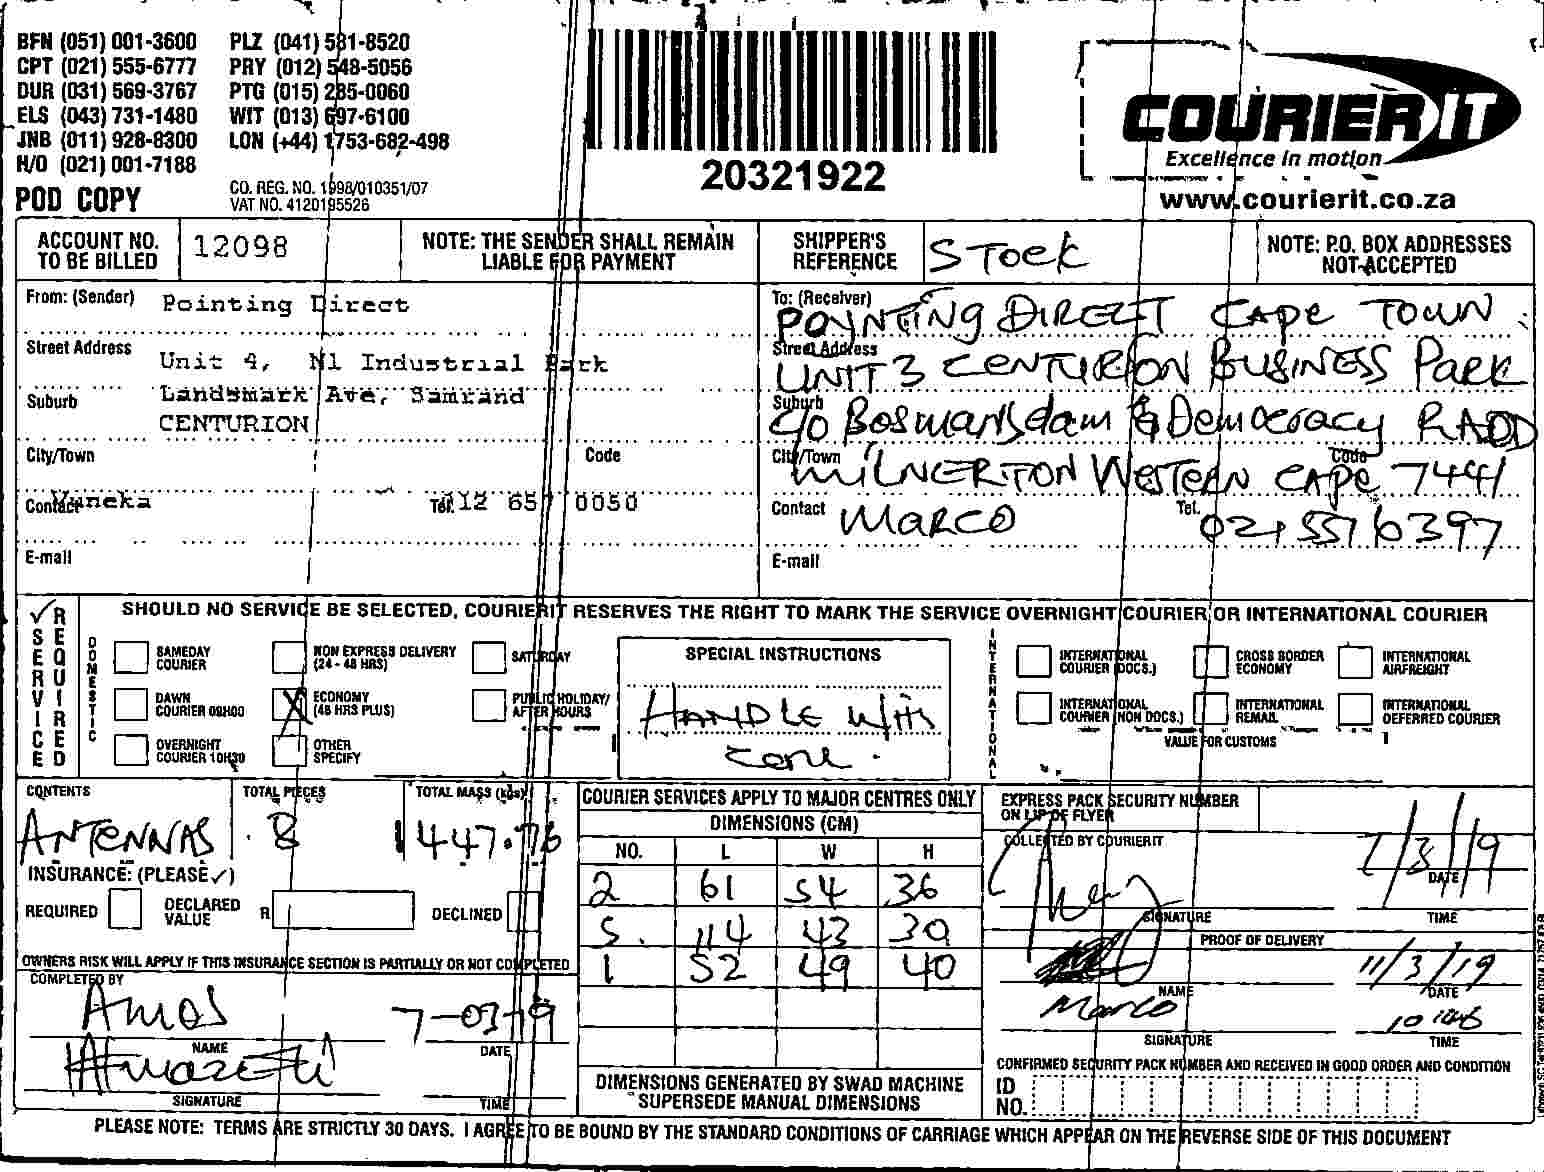 BFN (051) 001-3600 PLZ (041) 581-8520
CPT (021) 555-6777 PRY (012) 548-5056
DUR (031) 569-3767 PTG (015) 285-0060
ELS (043) 731-1480 WIT (013) 697-6100
JNB (011) 928-8300 LON (+44) 1753-682-498
H/O (021) 001-7188
POD COPY
CO. REG. NO. 1998/010351/07
VAT NO. 4120195526
20321922
COURIER IT
Excellence in motion
www.courierit.co.za
ACCOUNT NO. TO BE BILLED
12098
NOTE: THE SENDER SHALL REMAIN LIABLE FOR PAYMENT
SHIPPER'S REFERENCE
STOCK
NOTE: P.O. BOX ADDRESSES NOT ACCEPTED
From: (Sender) Pointing Direct
Street Address Unit 4, N1 Industrial Park
Suburb Landsmark Ave, Samrand
CENTURION
City/Town Code
Contact Yuneka Tel. 012 657 0050
E-mail
To: (Receiver) POYNTING DIRECT CAPE TOWN
Street Address UNIT 3 CENTURION BUSINESS PARK
Suburb C/O Bosmansdam & Democracy ROAD
City/Town MILNERTON WESTERN CAPE Code 7441
Contact MARCO Tel. 021 551 6397
E-mail
SERVICE REQUIRED
SHOULD NO SERVICE BE SELECTED, COURIERIT RESERVES THE RIGHT TO MARK THE SERVICE OVERNIGHT COURIER OR INTERNATIONAL COURIER
DOMESTIC
SAMEDAY COURIER
NON EXPRESS DELIVERY (24 - 48 HRS)
SATURDAY
DAWN COURIER 09H00
X ECONOMY (48 HRS PLUS)
PUBLIC HOLIDAY/ AFTER HOURS
OVERNIGHT COURIER 10H30
OTHER SPECIFY
SPECIAL INSTRUCTIONS
HANDLE WITH
CARE.
INTERNATIONAL
INTERNATIONAL COURIER (DOCS.)
CROSS BORDER ECONOMY
INTERNATIONAL AIRFREIGHT
INTERNATIONAL COURIER (NON DOCS.)
INTERNATIONAL REMAIL
INTERNATIONAL DEFERRED COURIER
VALUE FOR CUSTOMS
CONTENTS TOTAL PIECES TOTAL MASS (kgs)
ANTENNAS 8 447.76
INSURANCE: (PLEASE ✓)
REQUIRED DECLARED VALUE R DECLINED
OWNERS RISK WILL APPLY IF THIS INSURANCE SECTION IS PARTIALLY OR NOT COMPLETED
COMPLETED BY
AMOS 7-03-19
NAME DATE
SIGNATURE TIME
COURIER SERVICES APPLY TO MAJOR CENTRES ONLY
DIMENSIONS (CM)
NO. L W H
2 61 54 36
5 114 43 30
1 52 49 40
DIMENSIONS GENERATED BY SWAD MACHINE
SUPERSEDE MANUAL DIMENSIONS
EXPRESS PACK SECURITY NUMBER ON LIP OF FLYER
COLLECTED BY COURIERIT
7/3/19
DATE
SIGNATURE TIME
PROOF OF DELIVERY
11/3/19
NAME DATE
Marco
SIGNATURE TIME
CONFIRMED SECURITY PACK NUMBER AND RECEIVED IN GOOD ORDER AND CONDITION
ID NO.
PLEASE NOTE: TERMS ARE STRICTLY 30 DAYS. I AGREE TO BE BOUND BY THE STANDARD CONDITIONS OF CARRIAGE WHICH APPEAR ON THE REVERSE SIDE OF THIS DOCUMENT